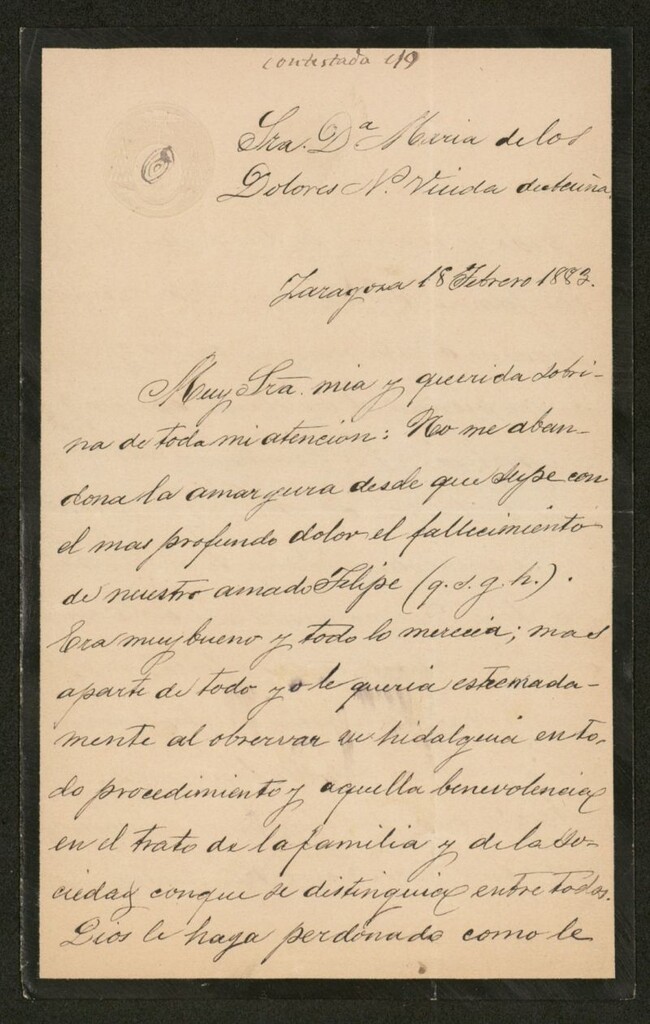 contestada
Sra. Dª Maria de los
Dolores N. Viuda de
Zaragoza 18 Febrero 1883.
Muy Sra. mia y querida sobri-
na de toda mi atencion: No me aban-
dona la amargura desde que supe con
el mas profundo dolor el fallecimiento
de nuestro amado Felipe (q. s. g. h.).
Era muy bueno y todo lo merecia; mas
aparte de todo yo le queria estremada-
mente al observar su hidalguia en to-
do procedimiento y aquella benevolencia
en el trato de la familia y de la so-
ciedad conque se distinguia entre todos.
Dios le haya perdonado como le